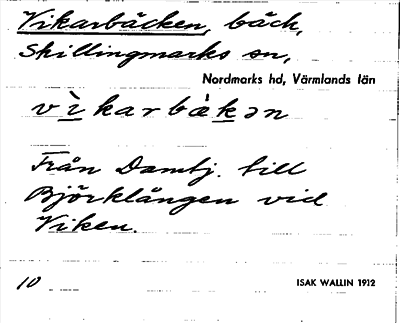 Vikarbäcken, bäck,
Skillingmarks sn,
Nordmarks hd, Värmlands län
vìkarbàkən
Från Damtj. till
Björklången vid
Viken.
10
ISAK WALLIN 1912